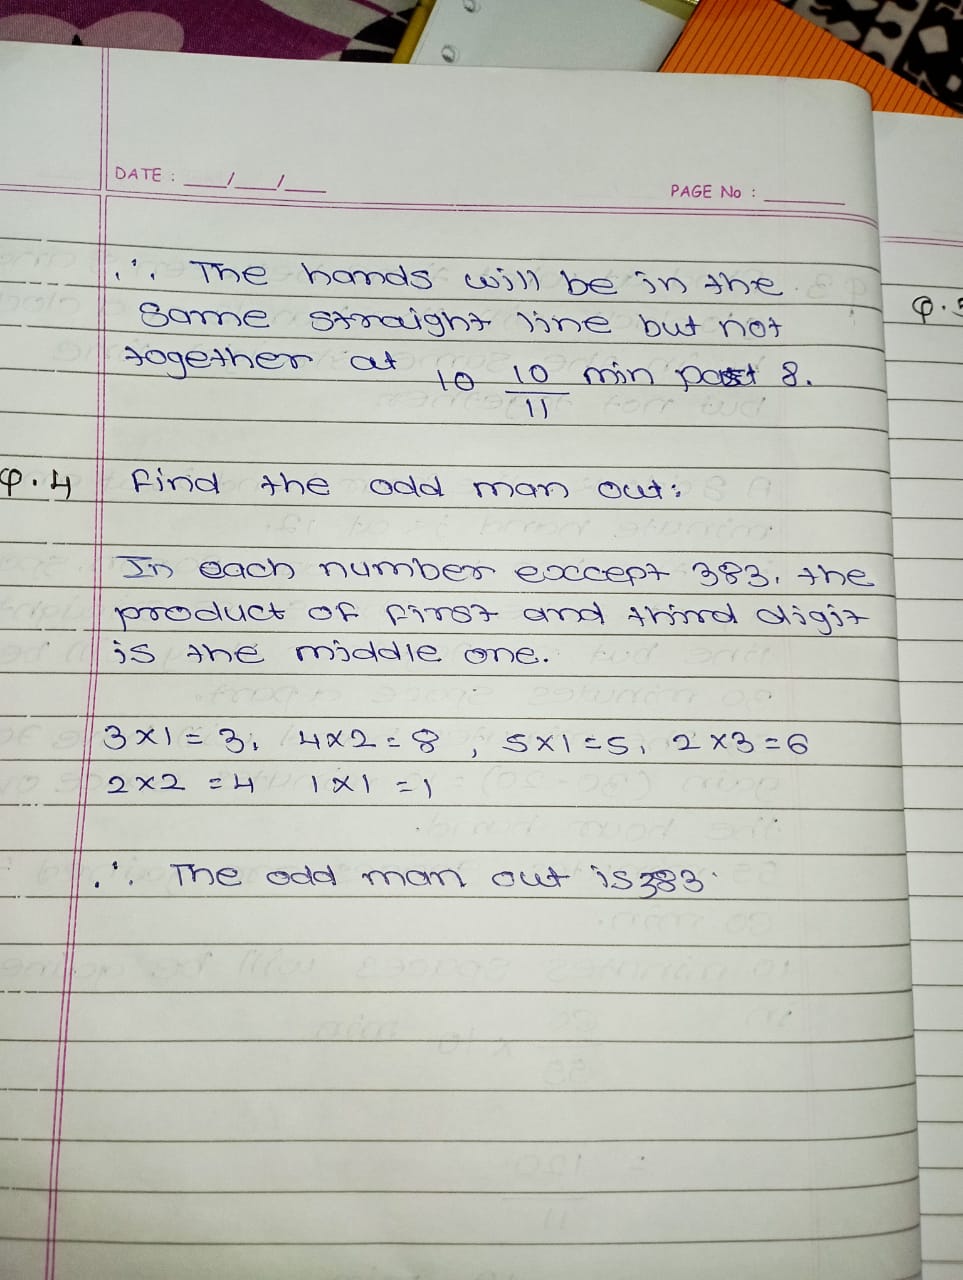 DATE : __/__/__
PAGE No : ____
∴ The hands will be in the
same straight line but not
together at 10 10/11 min past 8.
Q.4 Find the odd man out:
In each number except 383, the
product of first and third digit
is the middle one.
3×1=3, 4×2=8, 5×1=5, 2×3=6
2×2=4 1×1=1
∴ The odd man out is 383.